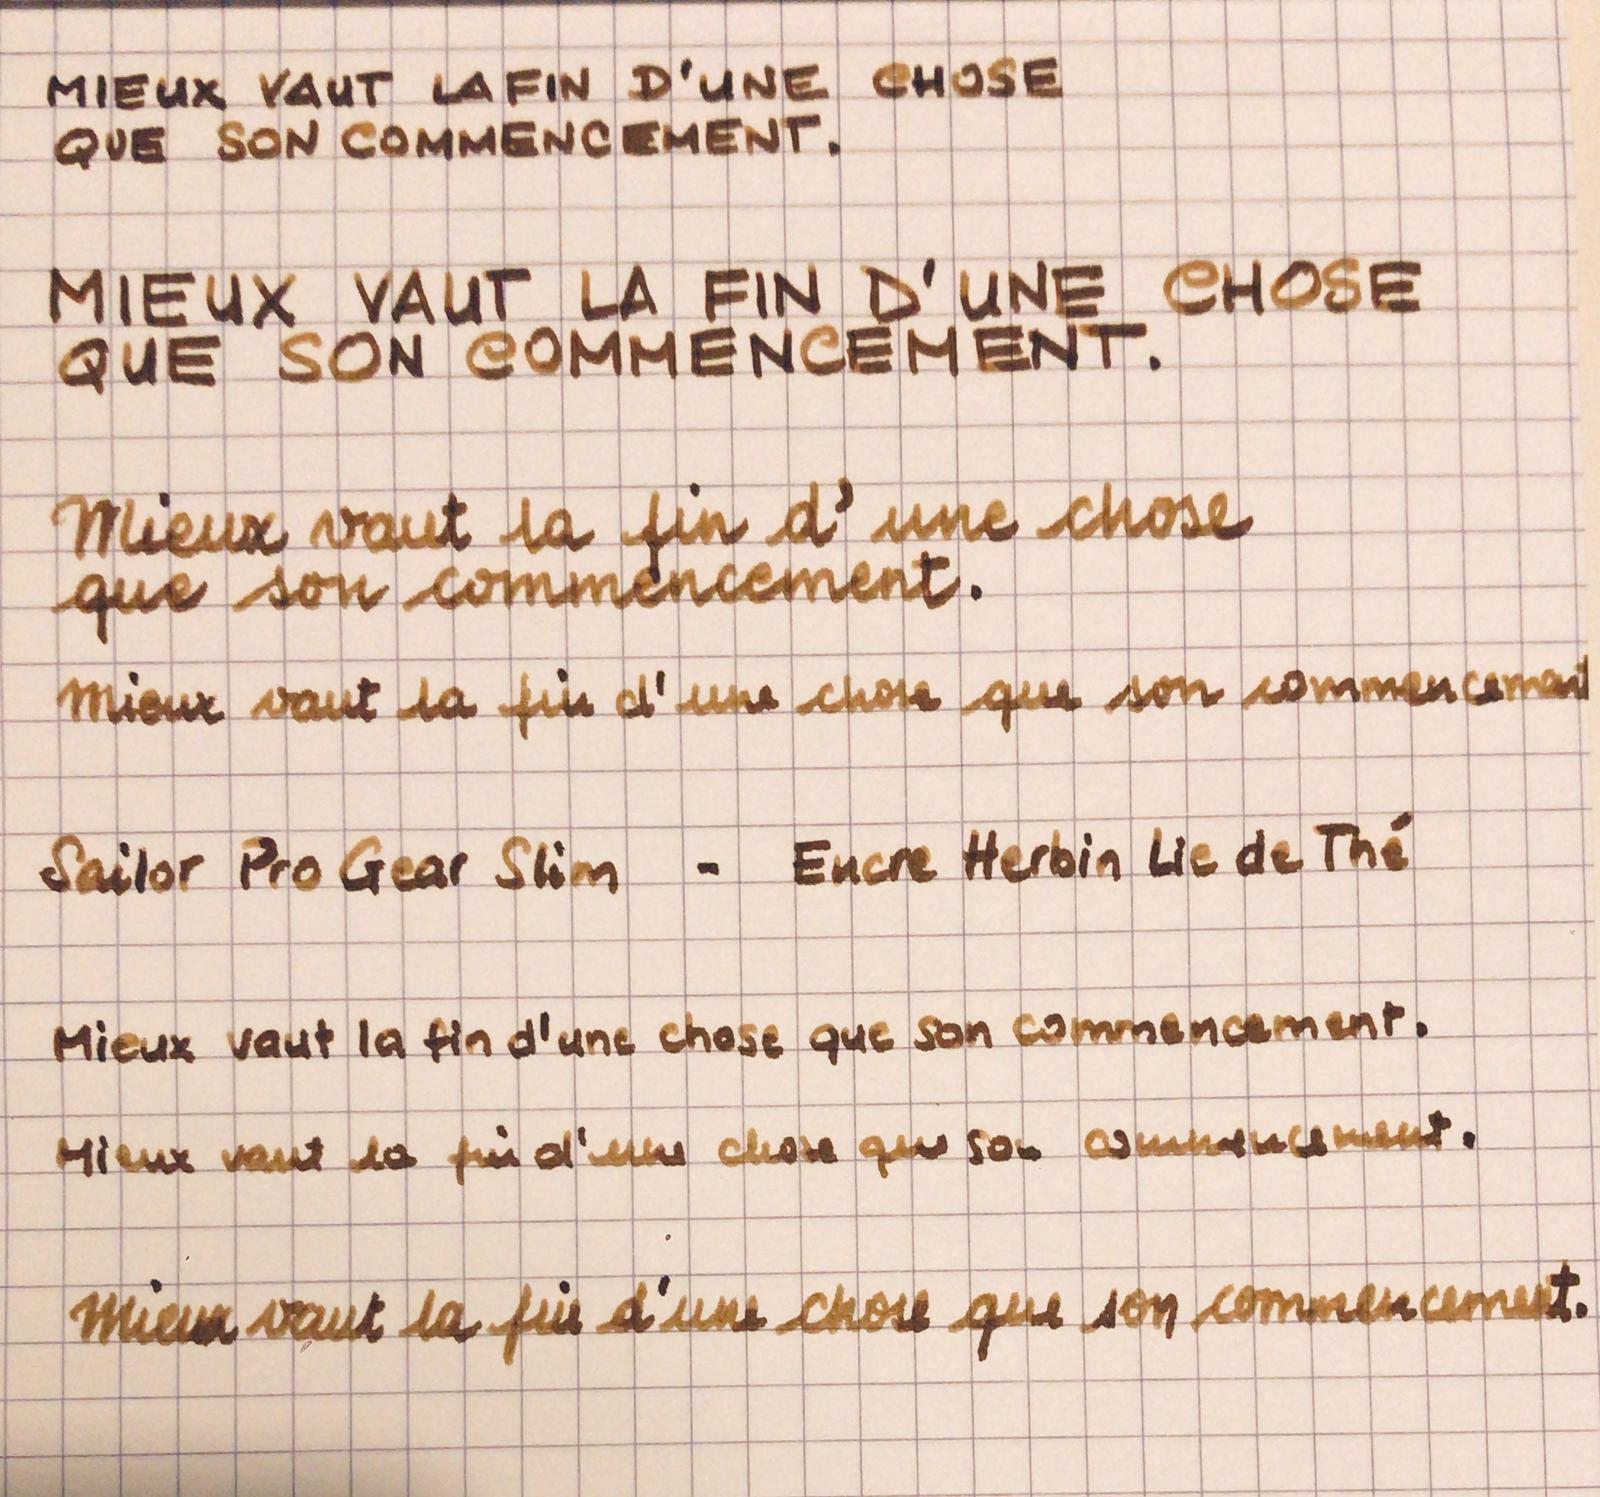 MIEUX VAUT LA FIN D'UNE CHOSE
QUE SON COMMENCEMENT.
MIEUX VAUT LA FIN D'UNE CHOSE
QUE SON COMMENCEMENT.
Mieux vaut la fin d'une chose
que son commencement.
Mieux vaut la fin d'une chose que son commencement
Sailor Pro Gear Slim - Encre Herbin Lie de Thé
Mieux vaut la fin d'une chose que son commencement.
Mieux vaut la fin d'une chose que son commencement.
Mieux vaut la fin d'une chose que son commencement.